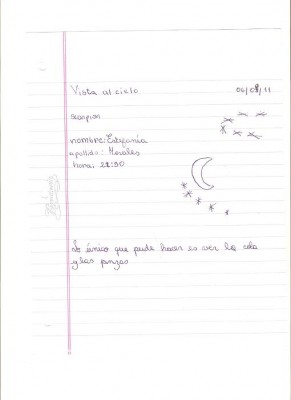 Vista al cielo 06/08/11
scorpion
nombre: Estefanía
apellido: Morales
hora: 21:30
Lo único que pude hacer es ver la cola
y las pinzas